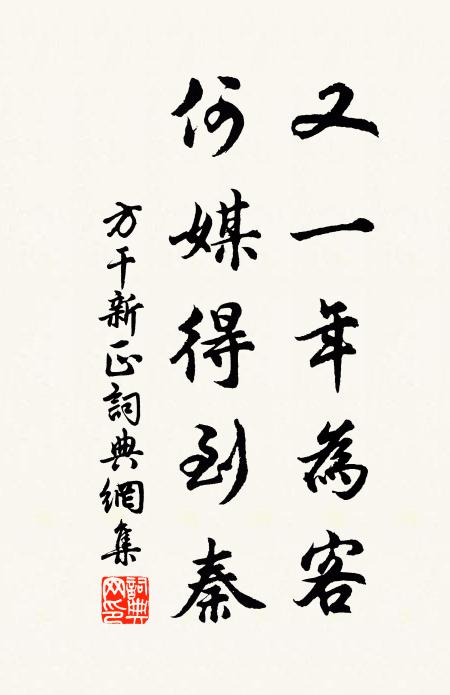 又一年為客
何媒得到秦
方干新正詞典網集
詞典
网印